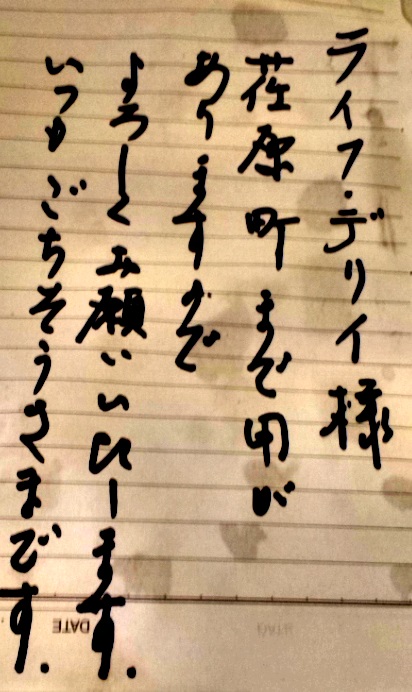 ライフ・デリイ様
荏原町まで用が
ありますので
よろしくお願いいたします.
いつもごちそうさまです.
DATE